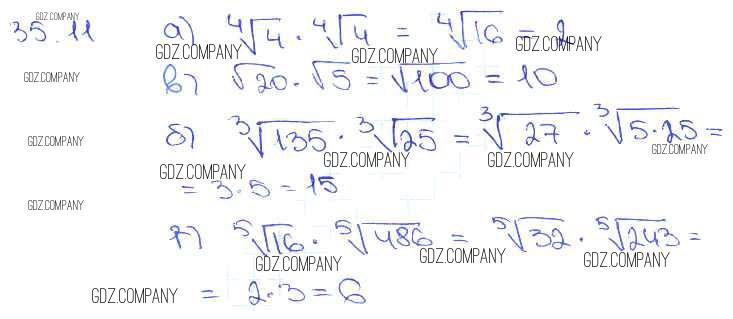 GDZ.COMPANY
35.11 а) ⁴√4 · ⁴√4 = ⁴√16 = 2
GDZ.COMPANY GDZ.COMPANY GDZ.COMPANY
GDZ.COMPANY
в) √20 · √5 = √100 = 10
б) ³√135 · ³√25 = ³√27 · ³√5·25 =
GDZ.COMPANY GDZ.COMPANY
GDZ.COMPANY GDZ.COMPANY GDZ.COMPANY
= 3·5 = 15
GDZ.COMPANY
г) ⁵√16 · ⁵√486 = ⁵√32 · ⁵√243 =
GDZ.COMPANY GDZ.COMPANY GDZ.COMPANY
GDZ.COMPANY = 2·3 = 6